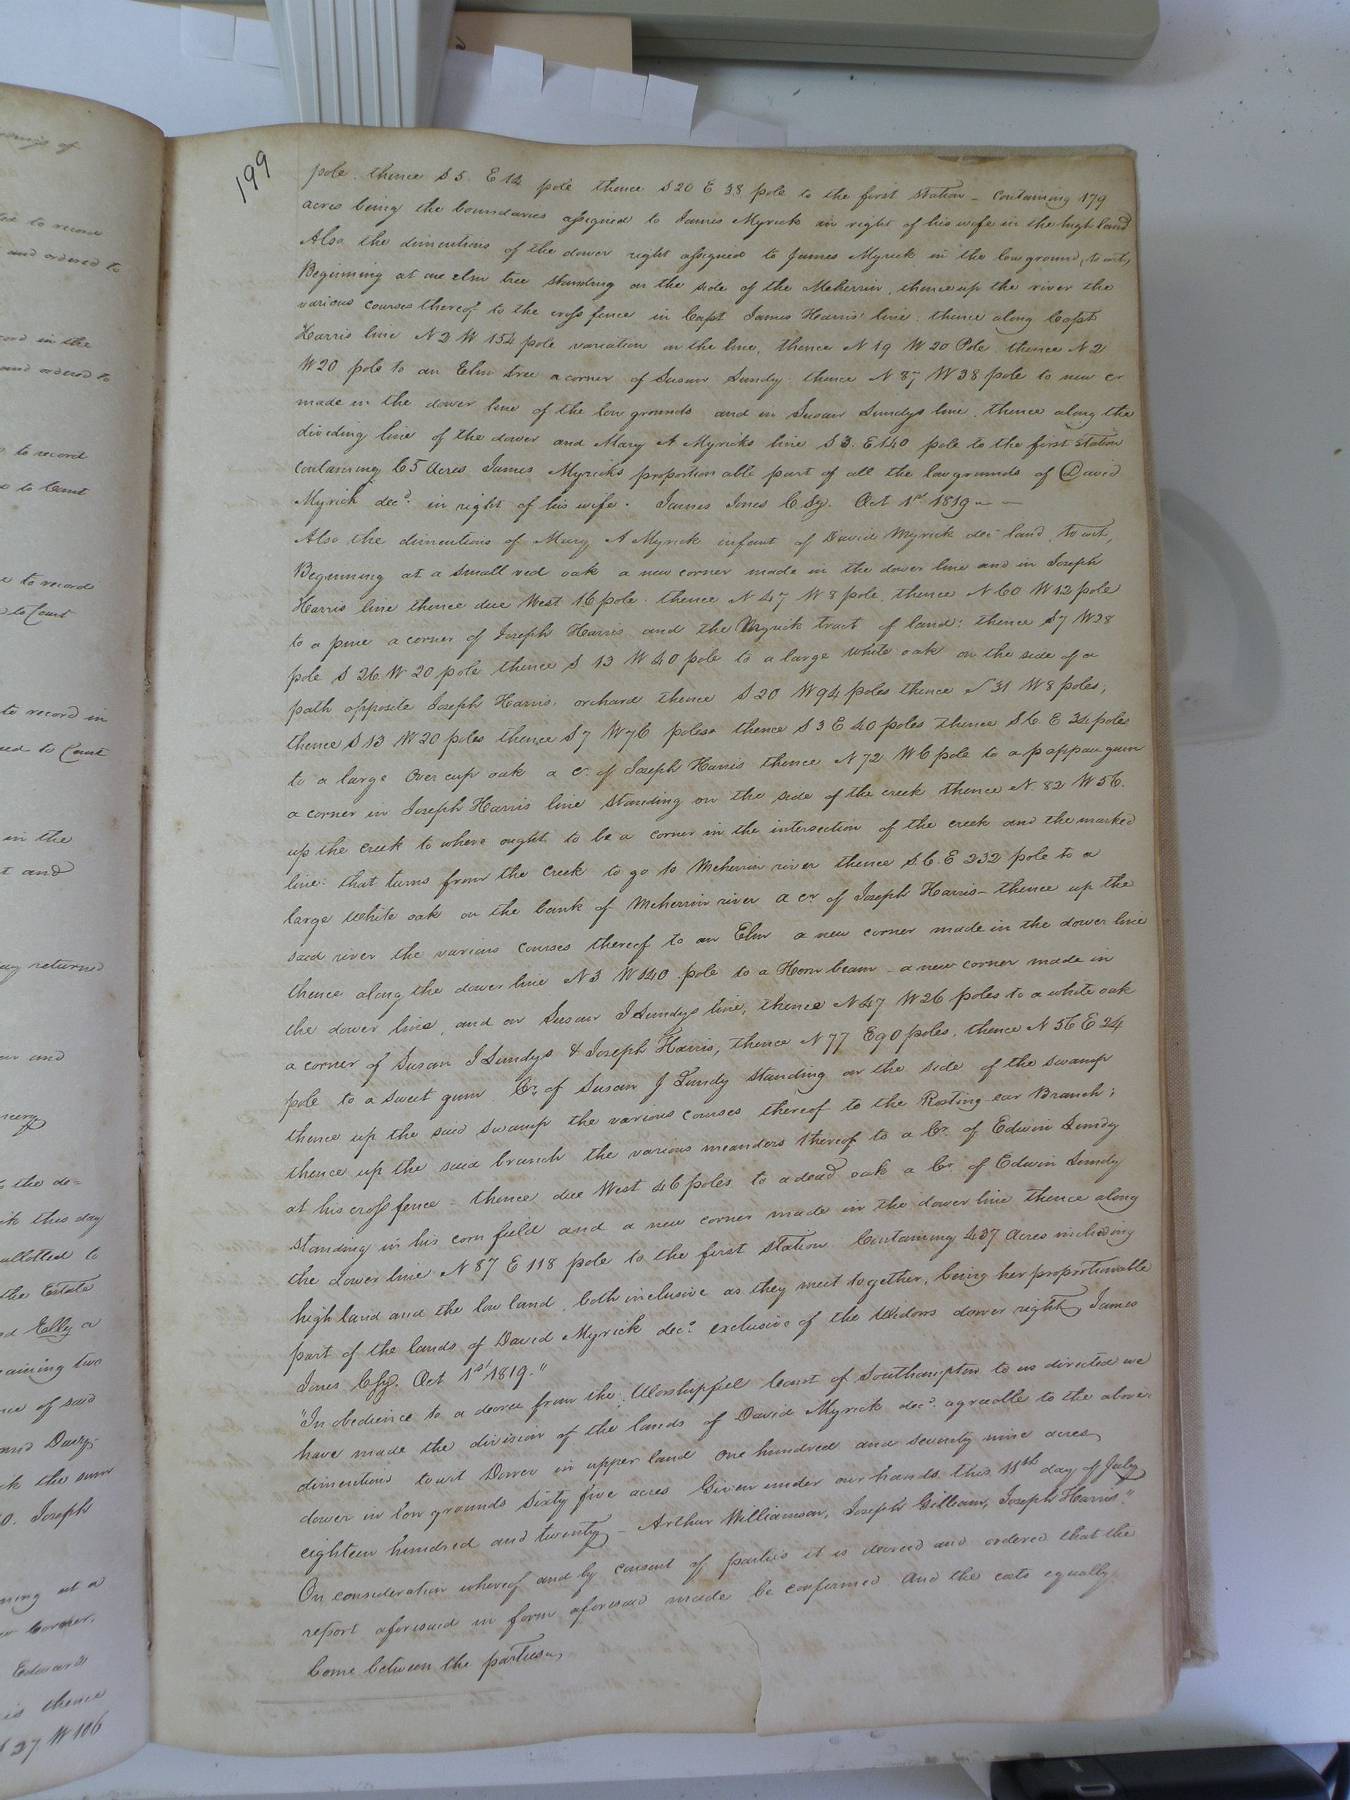 199
pole. thence S 5. E 12 pole thence S 20 E 38 pole to the first station – Containing 179
acres being the boundaries assigned to James Myrick in right of his wife in the high land
Also the dimentions of the dower right assigned to James Myrick in the low ground, to wit,
Beginning at one elm tree standing on the side of the Meherrin, thence up the river the
various courses thereof to the cross fence in Capt James Harris' line: thence along Capt
Harris line N 2 W 154 pole variation on the line, thence N 19 W 20 Pole thence N 2
W 20 pole to an Elm tree a corner of Susan Lundy thence N 87 W 38 pole to new cr
made in the dower line of the low grounds and in Susan Lundys line, thence along the
dividing line of the dower and Mary A Myricks line S 3. E 140 pole to the first station
Containing 65 Acres James Myricks proportion able part of all the low grounds of David
Myrick decd. in right of his wife. James Jones C. Sy. Oct 1st 1819
Also the dimentions of Mary A Myrick infant of David Myrick decd land, to wit,
Beginning at a small red oak a new corner made in the dower line and in Joseph
Harris line thence due West 16 pole. thence N 47 W 8 pole, thence N 60 W 12 pole
to a pine a corner of Joseph Harris and the Myrick tract of land: thence S 7 W 28
pole S 26 W 20 pole thence S 13 W 40 pole to a large white oak on the side of a
path opposite Joseph Harris, orchard thence S 20 W 94 poles thence N 31 W 8 poles,
thence S 13 W 20 poles thence S 7 W 76 poles thence S 3 E 40 poles thence S 6. E 34 poles
to a large Over cup oak a cr. of Joseph Harris thence N 72 W 6 pole to a pappau gum
a corner in Joseph Harris line standing on the side of the creek thence N. 82 W 56.
up the creek to where ought to be a corner in the intersection of the creek and the marked
line: that turns from the creek to go to Meherrin river thence S. 6. E 232 pole to a
large white oak on the bank of Meherrin river a cr of Joseph Harris – thence up the
said river the various courses thereof to an Elm a new corner made in the dower line
thence along the dower line N 3 W 140 pole to a Horn beam – a new corner made in
the dower line, and on Susan J Lundys line, thence N 47 W 26 poles to a white oak
a corner of Susan J Lundys & Joseph Harris, thence N 77 E 90 poles, thence N 56 E 24
pole to a sweet gum Cr. of Susan J Lundy standing on the side of the swamp
thence up the said swamp the various courses thereof to the Rosting ear Branch;
thence up the said branch the various meanders thereof to a Cr. of Edwin Lundy
at his cross fence – thence due West 46 poles to a dead oak a Cr of Edwin Lundy
standing in his corn field and a new corner made in the dower line thence along
the dower line N 87 E 118 pole to the first Station Containing 437 Acres including
high land and the low land, both inclusive as they meet together, being her proportionable
part of the lands of David Myrick decd. exclusive of the widows dower right James
Jones C Sy. Oct 1st 1819."
"In obedience to a decree from the Worshipful Court of Southampton to us directed we
have made the division of the lands of David Myrick decd. agreable to the above
dimentions to wit Dower in upper land one hundred and seventy nine acres,
dower in low grounds Sixty five acres Given under our hands this 11th day of July
eighteen hundred and twenty – Arthur Williamson, Joseph Gilliam, Joseph Harris"
On consideration whereof and by consent of parties it is decreed and ordered that the
report aforesaid in form aforesaid made be confirmed And the costs equally
borne between the parties